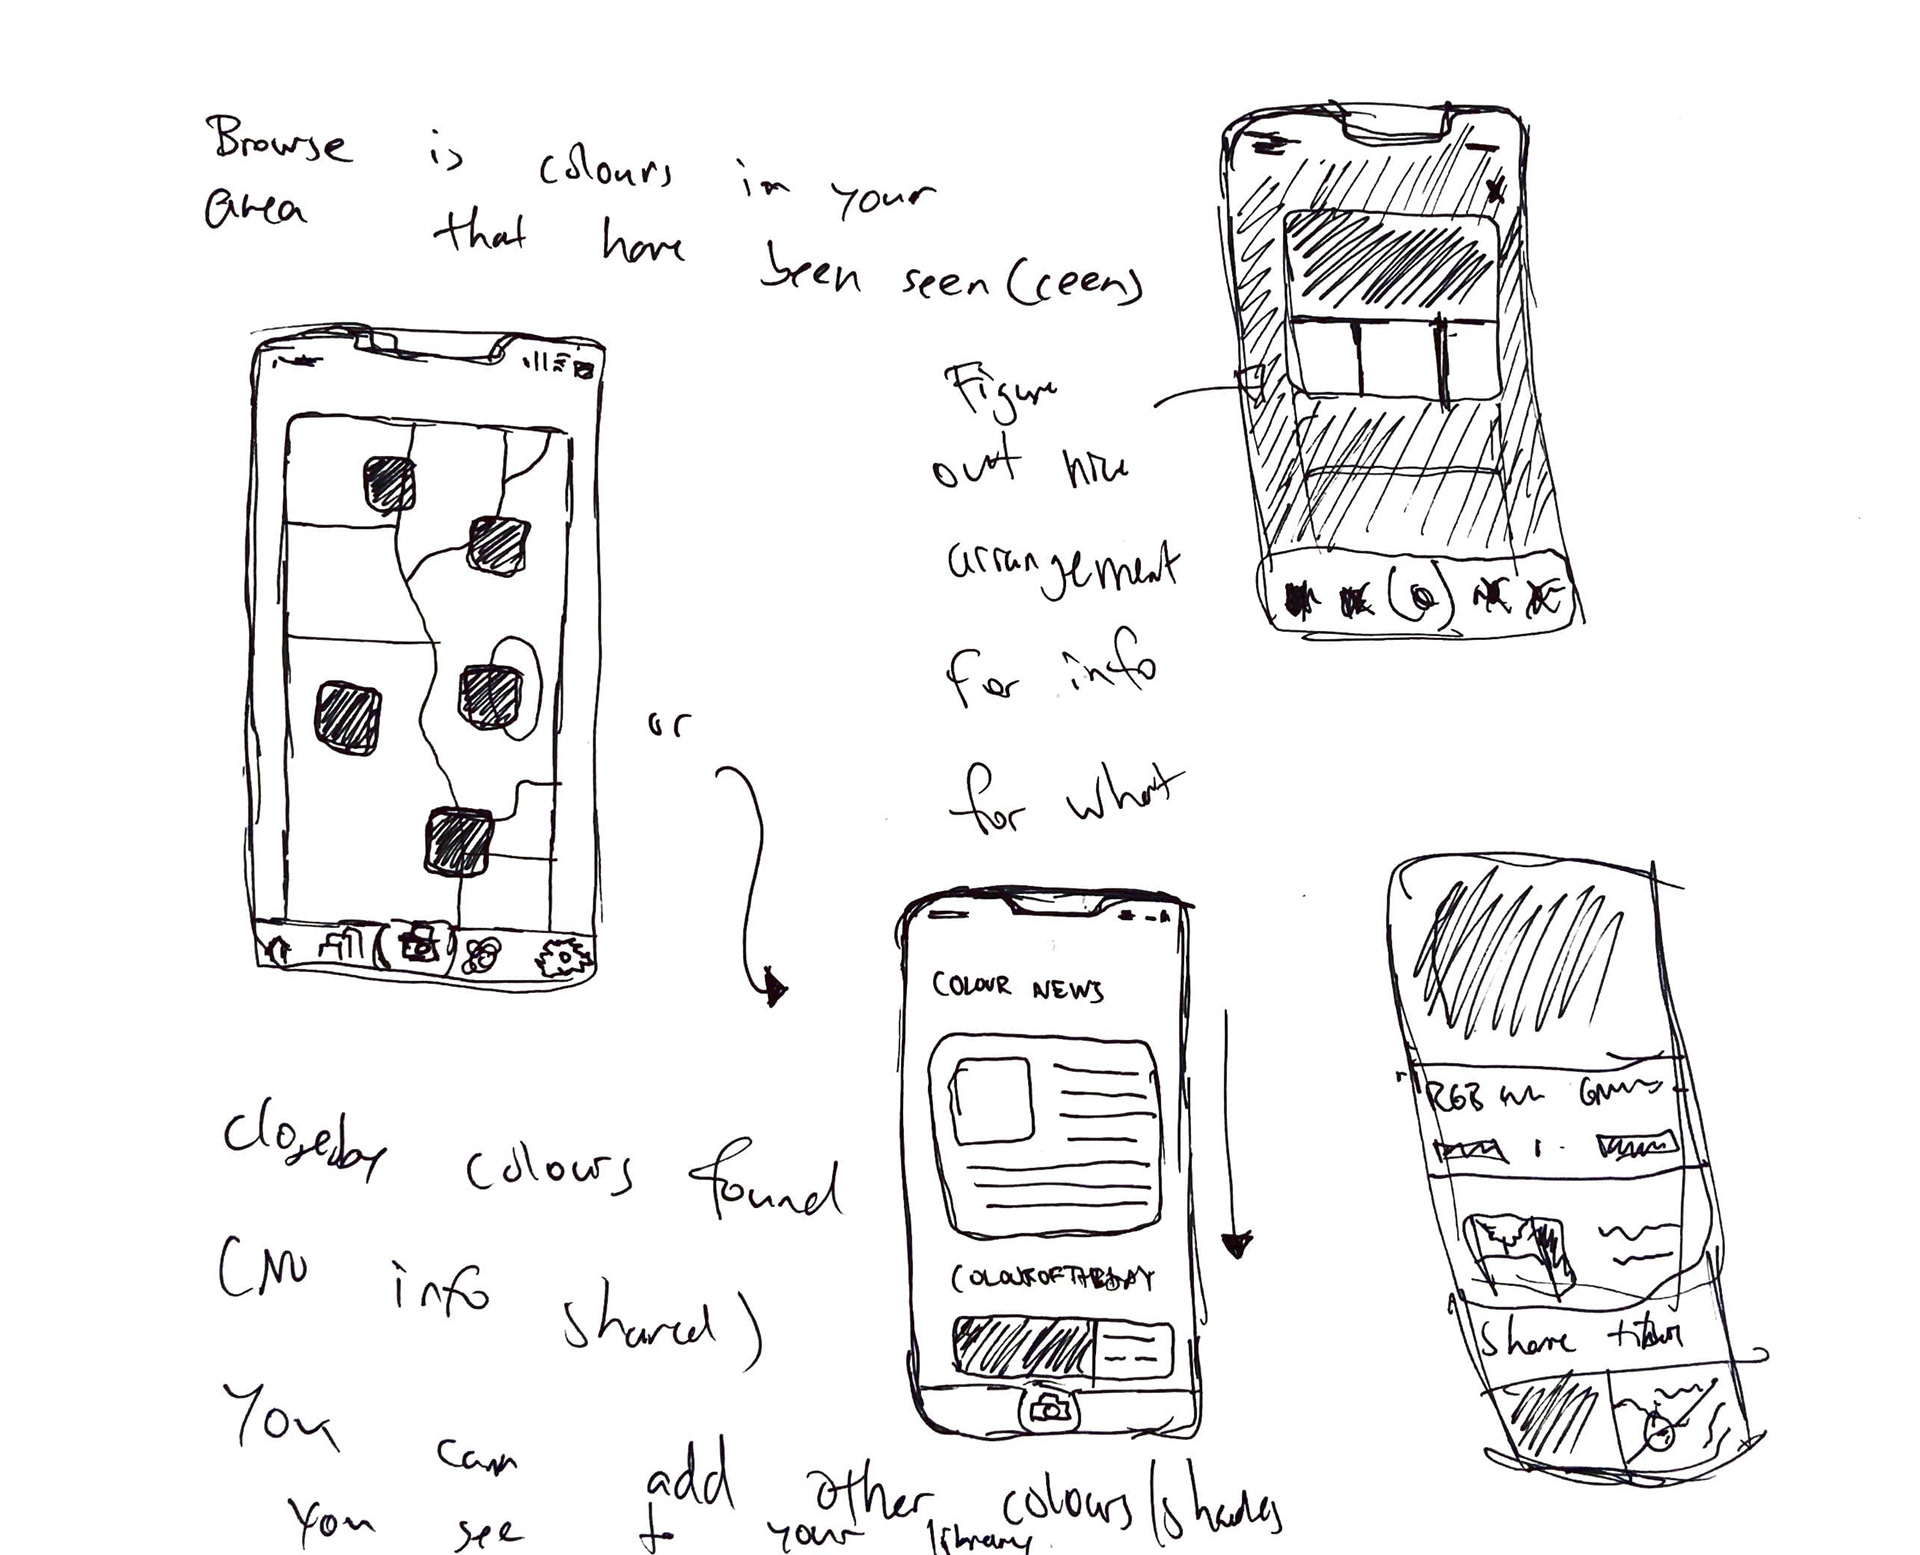 Browse is colours in your
area that have been seen (ceen)
Figure
out nice
arrangement
for info
for what
or
COLOUR NEWS
COLOUR OF THE DAY
RGB
Share
closeby colours found
(No info shared)
You can add other colours/shades
you see to your library